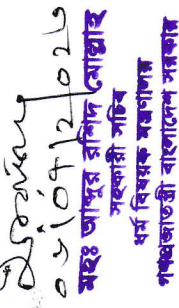 মোঃ আব্দুর রশিদ মোল্লাহ
সহকারী সচিব
ধর্ম বিষয়ক মন্ত্রণালয়
গণপ্রজাতন্ত্রী বাংলাদেশ সরকার